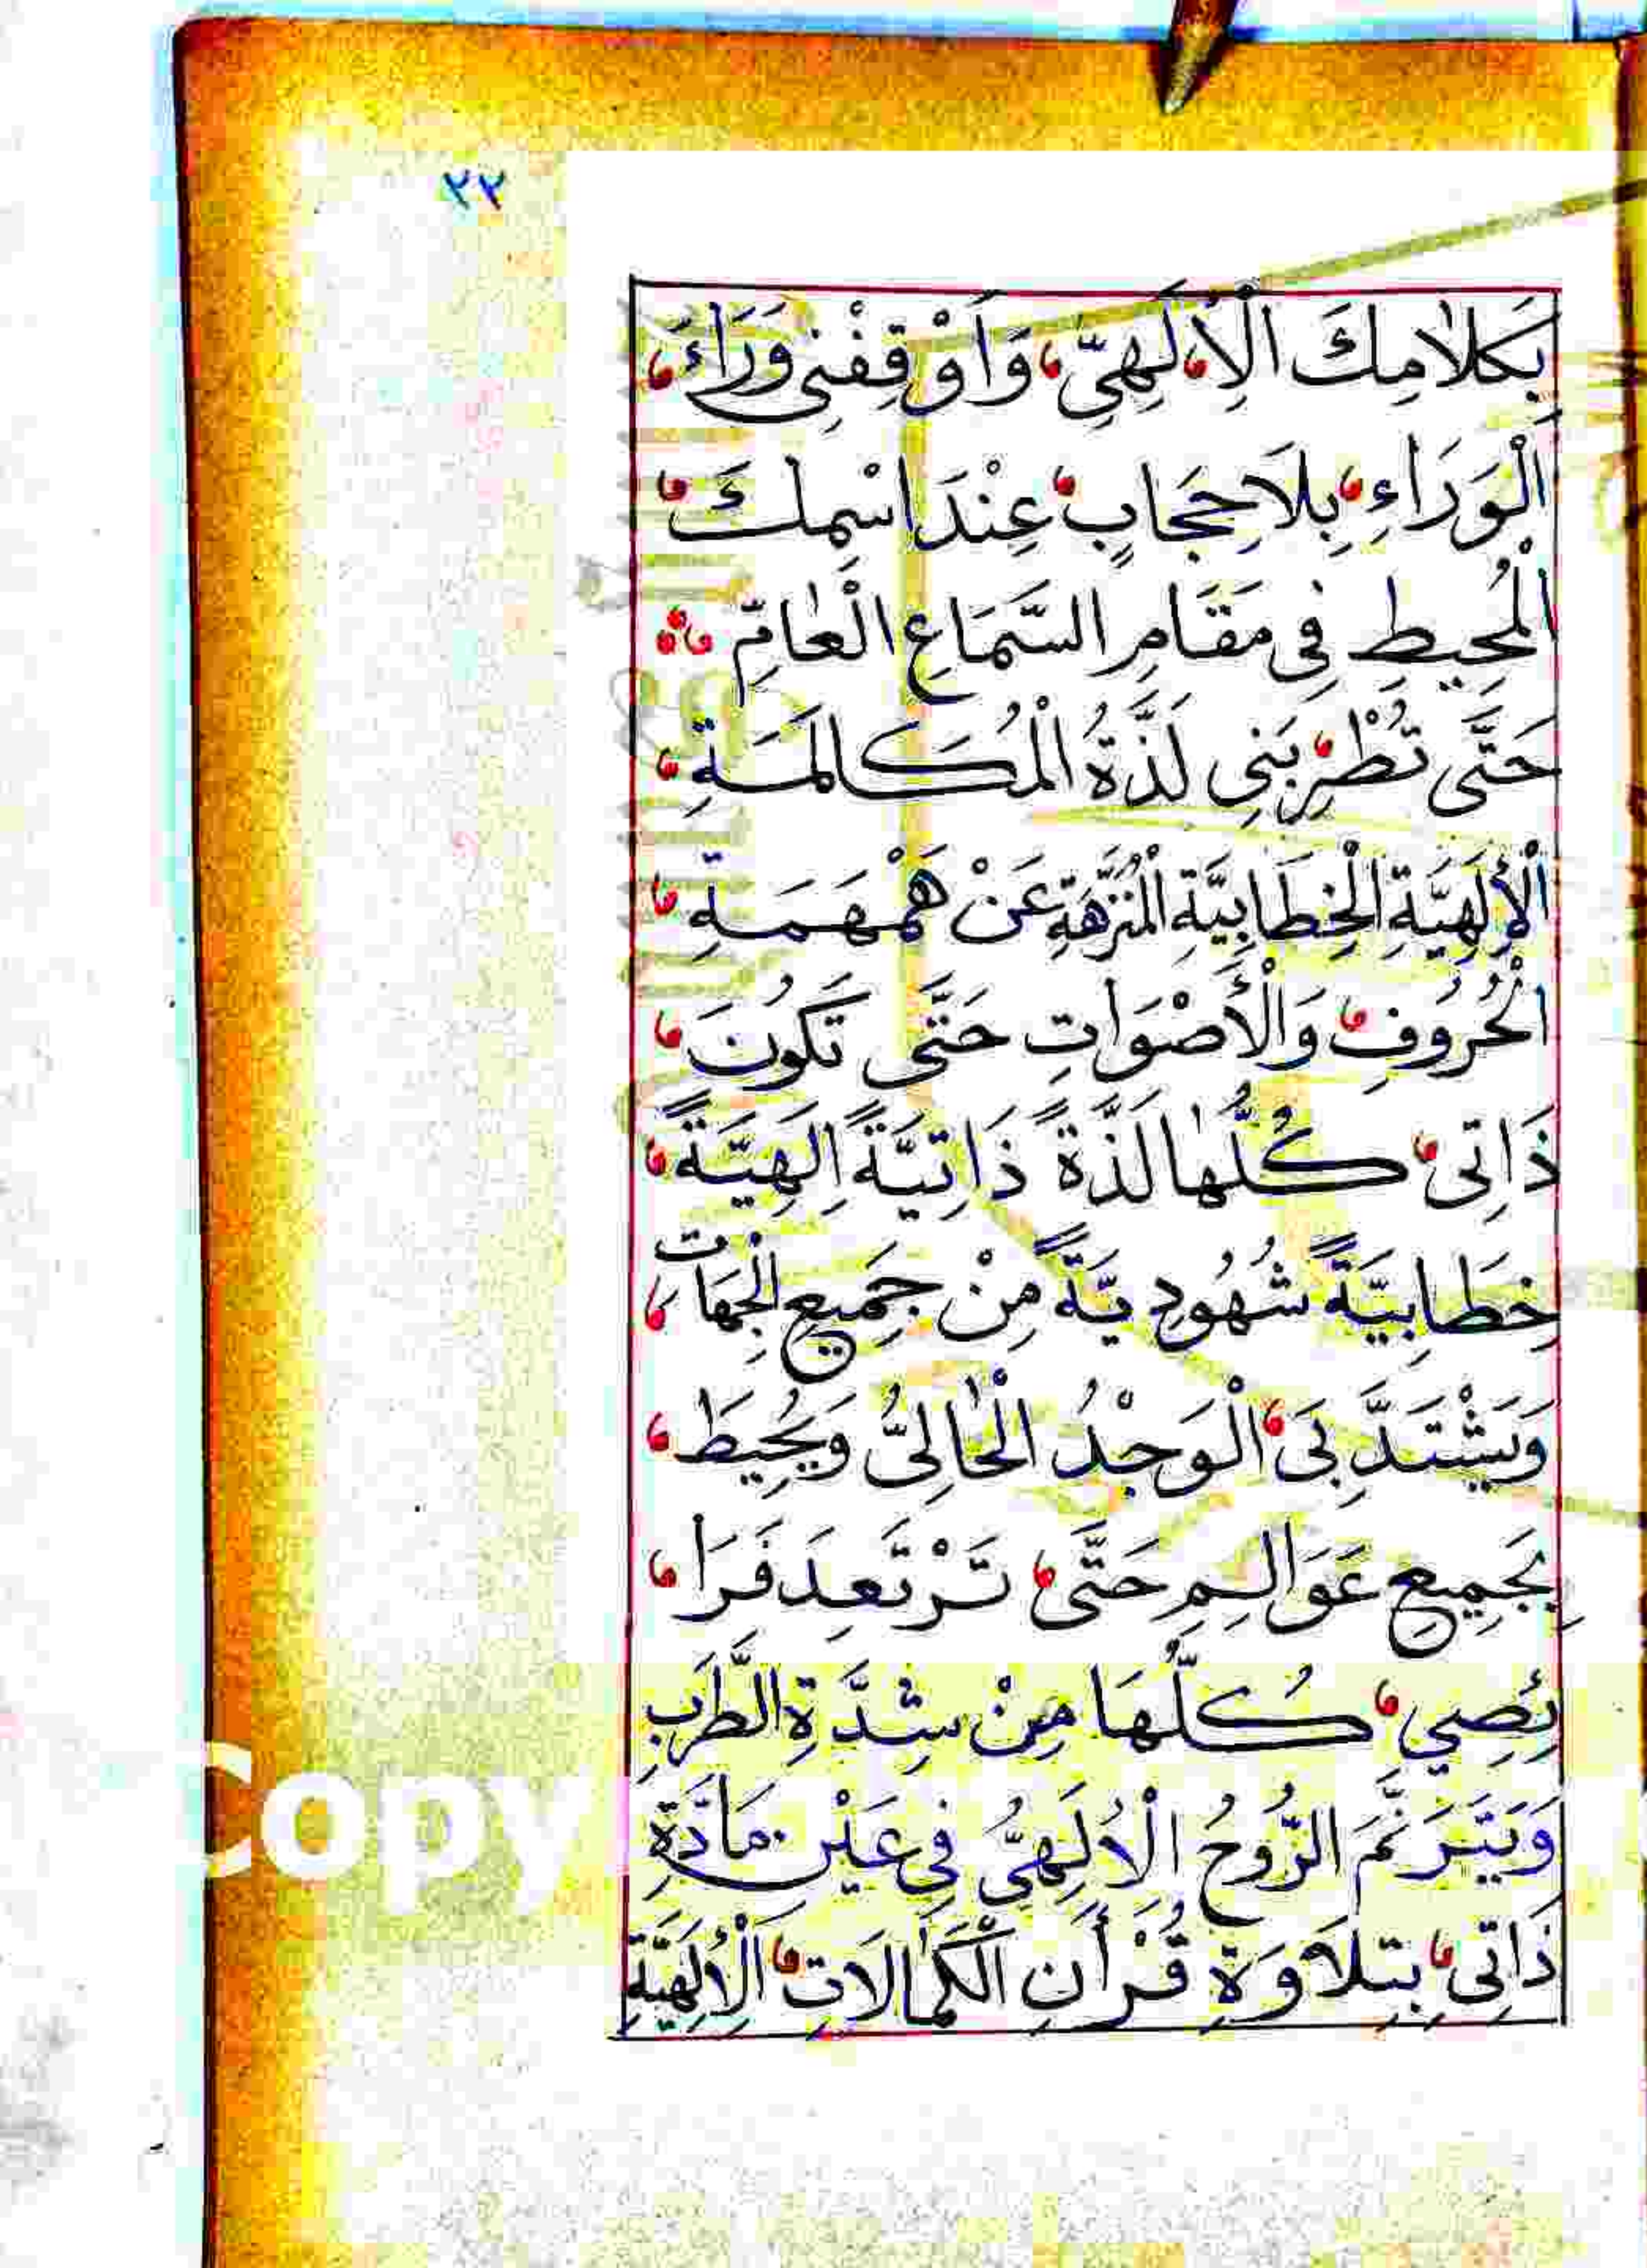 ٢٢
بِكَلَامِكَ الْاِلَهِيِّ، وَاَوْقِفْنِى وَرَاءَ،
الْوَرَاءِ، بِلَا حِجَابٍ، عِنْدَ اسْمِكَ،
الْمُحِيطِ فِى مَقَامِ السَّمَاعِ الْعَامِّ ؞
حَتَّى تُطْرِبَنِى لَذَّةُ الْمُكَالَمَةِ،
الْإِلَهِيَّةِ الْخِطَابِيَّةِ الْمُنَزَّهَةِ عَنْ هَمْهَمَةِ،
الْحُرُوفِ، وَالْأَصْوَاتِ حَتَّى تَكُونَ،
ذَاتِى، كُلُّهَا لَذَّةً ذَاتِيَّةً اِلَهِيَّةً،
خِطَابِيَّةً شُهُودِيَّةً مِنْ جَمِيعِ الْجِهَاتِ،
وَيَشْتَدَّ بِىَ، الْوَجْدُ الْحَالِىُّ وَيُحِيطَ،
بِجَمِيعِ عَوَالِمِ حَتَّى، تَرْتَعِدَ فَرَا،
ئِصِي، كُلُّهَا مِنْ شِدَّةِ الطَّرَبِ
وَيَتَرَنَّمَ الرُّوحُ الْاِلَهِىُّ فِى عَيْنِ مَادَّةِ
ذَاتِى، بِتِلَاوَةِ قُرْأَنِ الْكَمَالَاتِ، الْإِلَهِيَّةِ
Copy